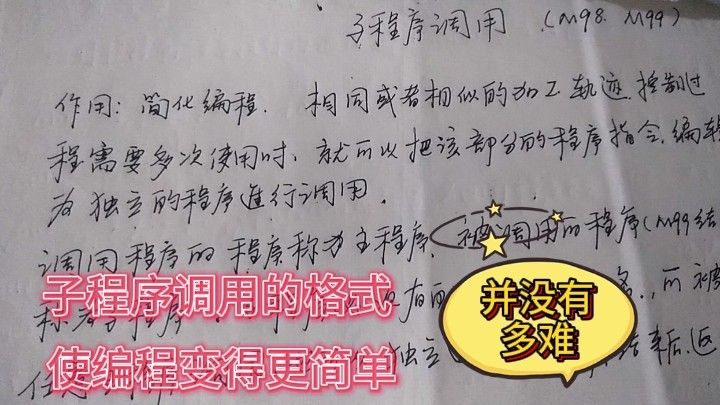 子程序调用 (M98. M99)
作用: 简化编程. 相同或者相似的加工轨迹.控制过
程需要多次使用时, 就可以把该部分的程序指令.编辑
为独立的程序进行调用.
调用程序的程序称为主程序, 被调用的程序(M99结
子程序调用的格式
并没有
多难
名, 而被
使编程变得更简单
独立
结束后.返